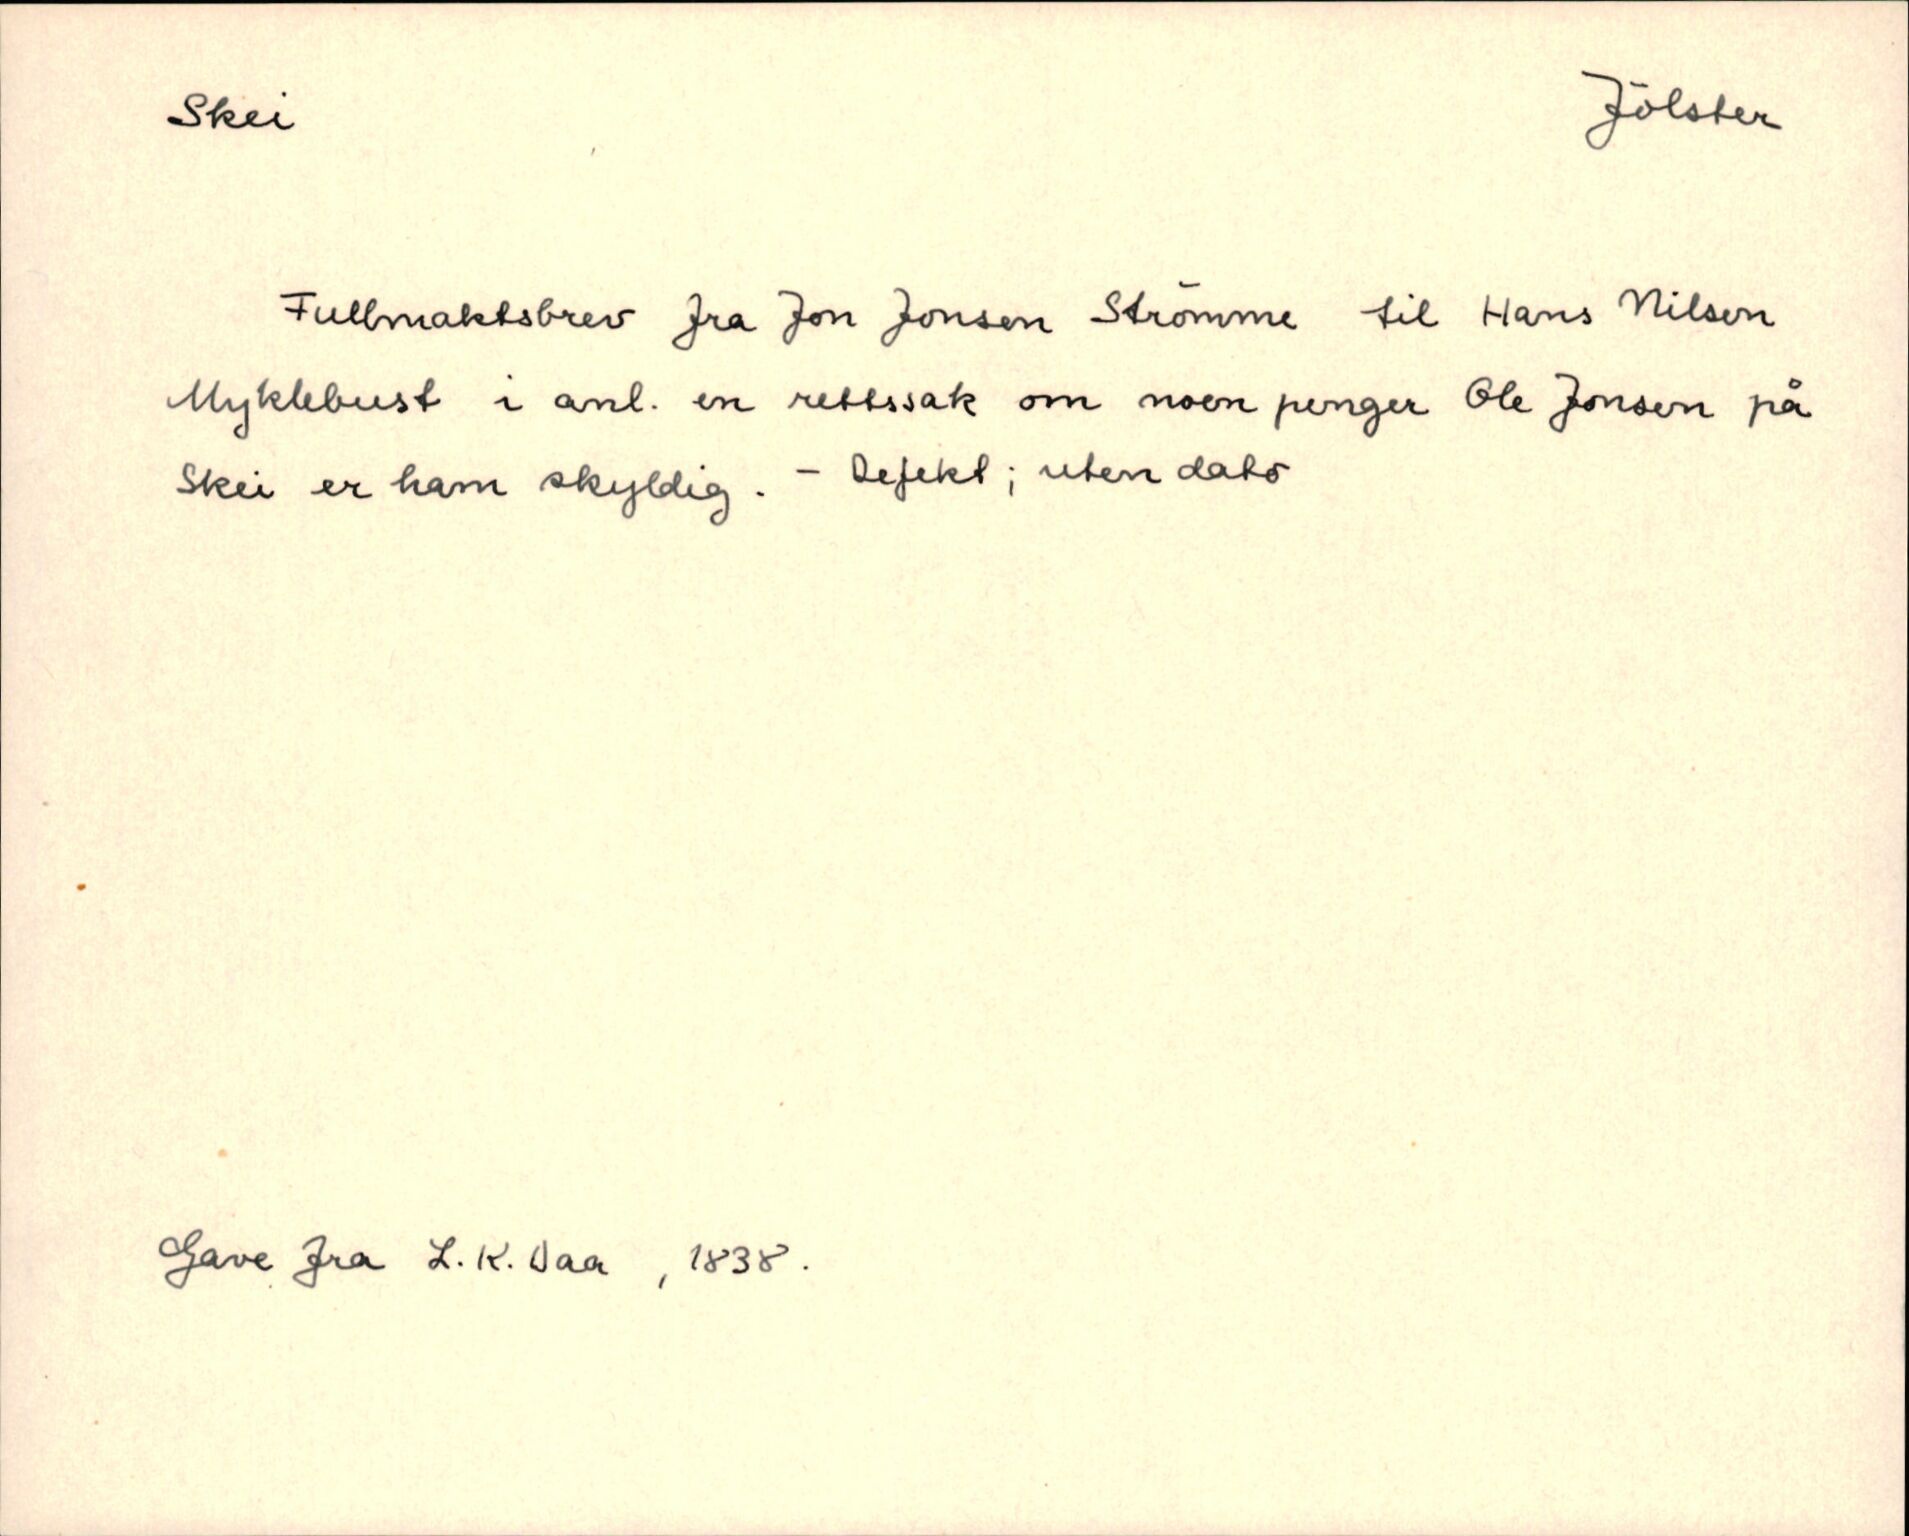 Skei
Jölster
Fullmaktsbrev fra Jon Jonsen Strömme til Hans Nilsen
Myklebust i anl. en rettssak om noen penger Ole Jonsen på
Skei er ham skyldig. - Defekt; uten dato
Gave fra L. K. Daa, 1838.